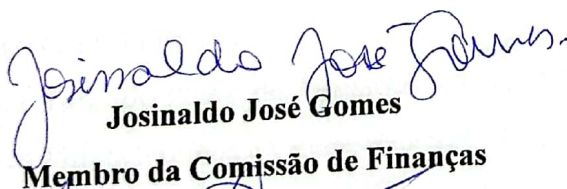 Josinaldo José Gomes.
Josinaldo José Gomes
Membro da Comissão de Finanças